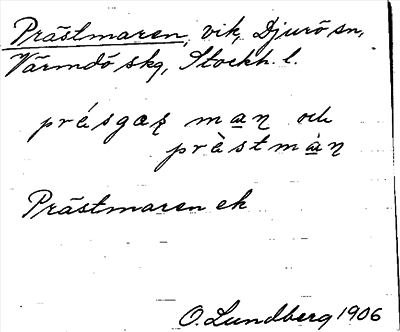 Prästmaren, vik, Djurö sn,
Värmdö skg, Stockh. l.
och
Prästmaren ek
O. Lundberg 1906